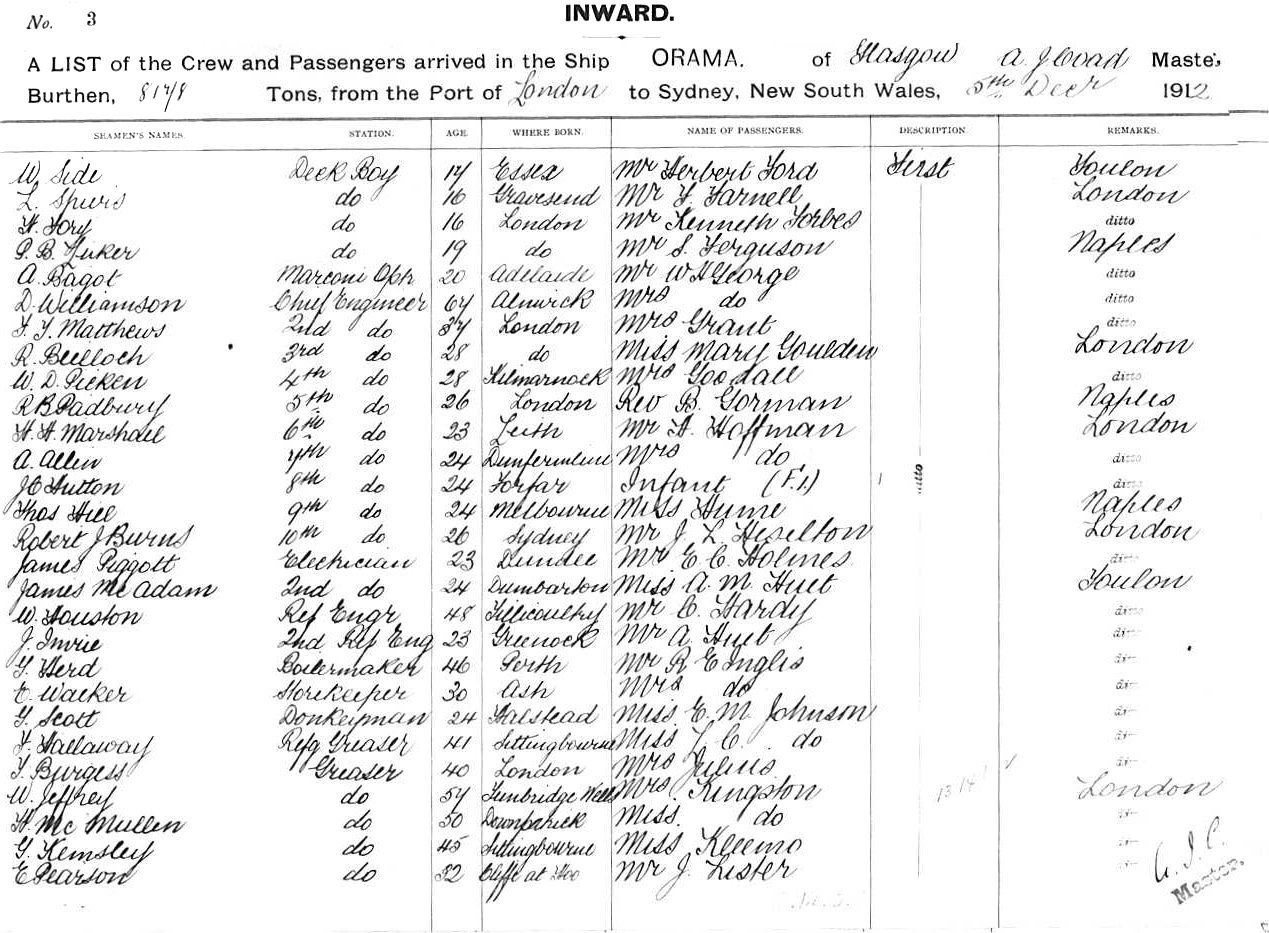 No. 3
INWARD.
A LIST of the Crew and Passengers arrived in the Ship ORAMA. of Glasgow A. J. Coad Master,
Burthen, 8179 Tons, from the Port of London to Sydney, New South Wales, 5th Decr 1912
SEAMEN'S NAMES. STATION. AGE. WHERE BORN. NAME OF PASSENGERS. DESCRIPTION. REMARKS.
W. Side Deck Boy 17 Essex Mr Herbert Ford First Toulon
L. Spiers do 16 Gravesend Mr F. Farnell London
H. Fory do 16 London Mr Kenneth Forbes ditto
P. B. do 19 do Mr S. Ferguson Naples
A. Bagot Marconi Optr 20 Adelaide Mr W H George ditto
D. Williamson Chief Engineer 67 Alnwick Mrs do ditto
F. T. Matthews 2nd do 37 London Mrs Grant ditto
R. Bulloch 3rd do 28 do Miss Mary Goulden London
W. D. Picken 4th do 28 Kilmarnock Mrs Goodall ditto
R B Padbury 5th do 26 London Rev B. Gorman Naples
H. H. Marshall 6th do 23 Leith Mr H. Hoffman London
A. Allen 7th do 24 Dunfermline Mrs do ditto
J C Hutton 8th do 24 Forfar Infant (F.1) ditto ditto
Thos Hill 9th do 24 Melbourne Miss Hume Naples
Robert J Burns 10th do 26 Sydney Mr J. L. Heselton London
James Piggott Electrician 23 Dundee Mr E. C. Holmes ditto
James Mc Adam 2nd do 24 Dumbarton Miss A. M. Huet Toulon
W. Houston Ref Engr 48 Tillicoultry Mr C. Hardy ditto
J. Imrie 2nd Ref Eng 23 Greenock Mr A. Huet ditto
G. Herd Boilermaker 46 Perth Mr R E Inglis do
E. Walker Storekeeper 30 Ash Mrs do do
G. Scott Donkeyman 24 Halstead Miss E. M. Johnson do
F. Hallaway Refg Greaser 41 Sittingbourne Miss L. C. do do
T. Burgess Greaser 40 London Mrs Julius do
W. Jeffrey do 57 Tunbridge Wells Mrs Kingston London
H. Mc Mullen do 50 Downpatrick Miss do do
G. Kemsley do 45 Sittingbourne Miss Kleemo do
E Pearson do 32 Cliffe at Hoo Mr J. Lister do
A. J. C.
Master.